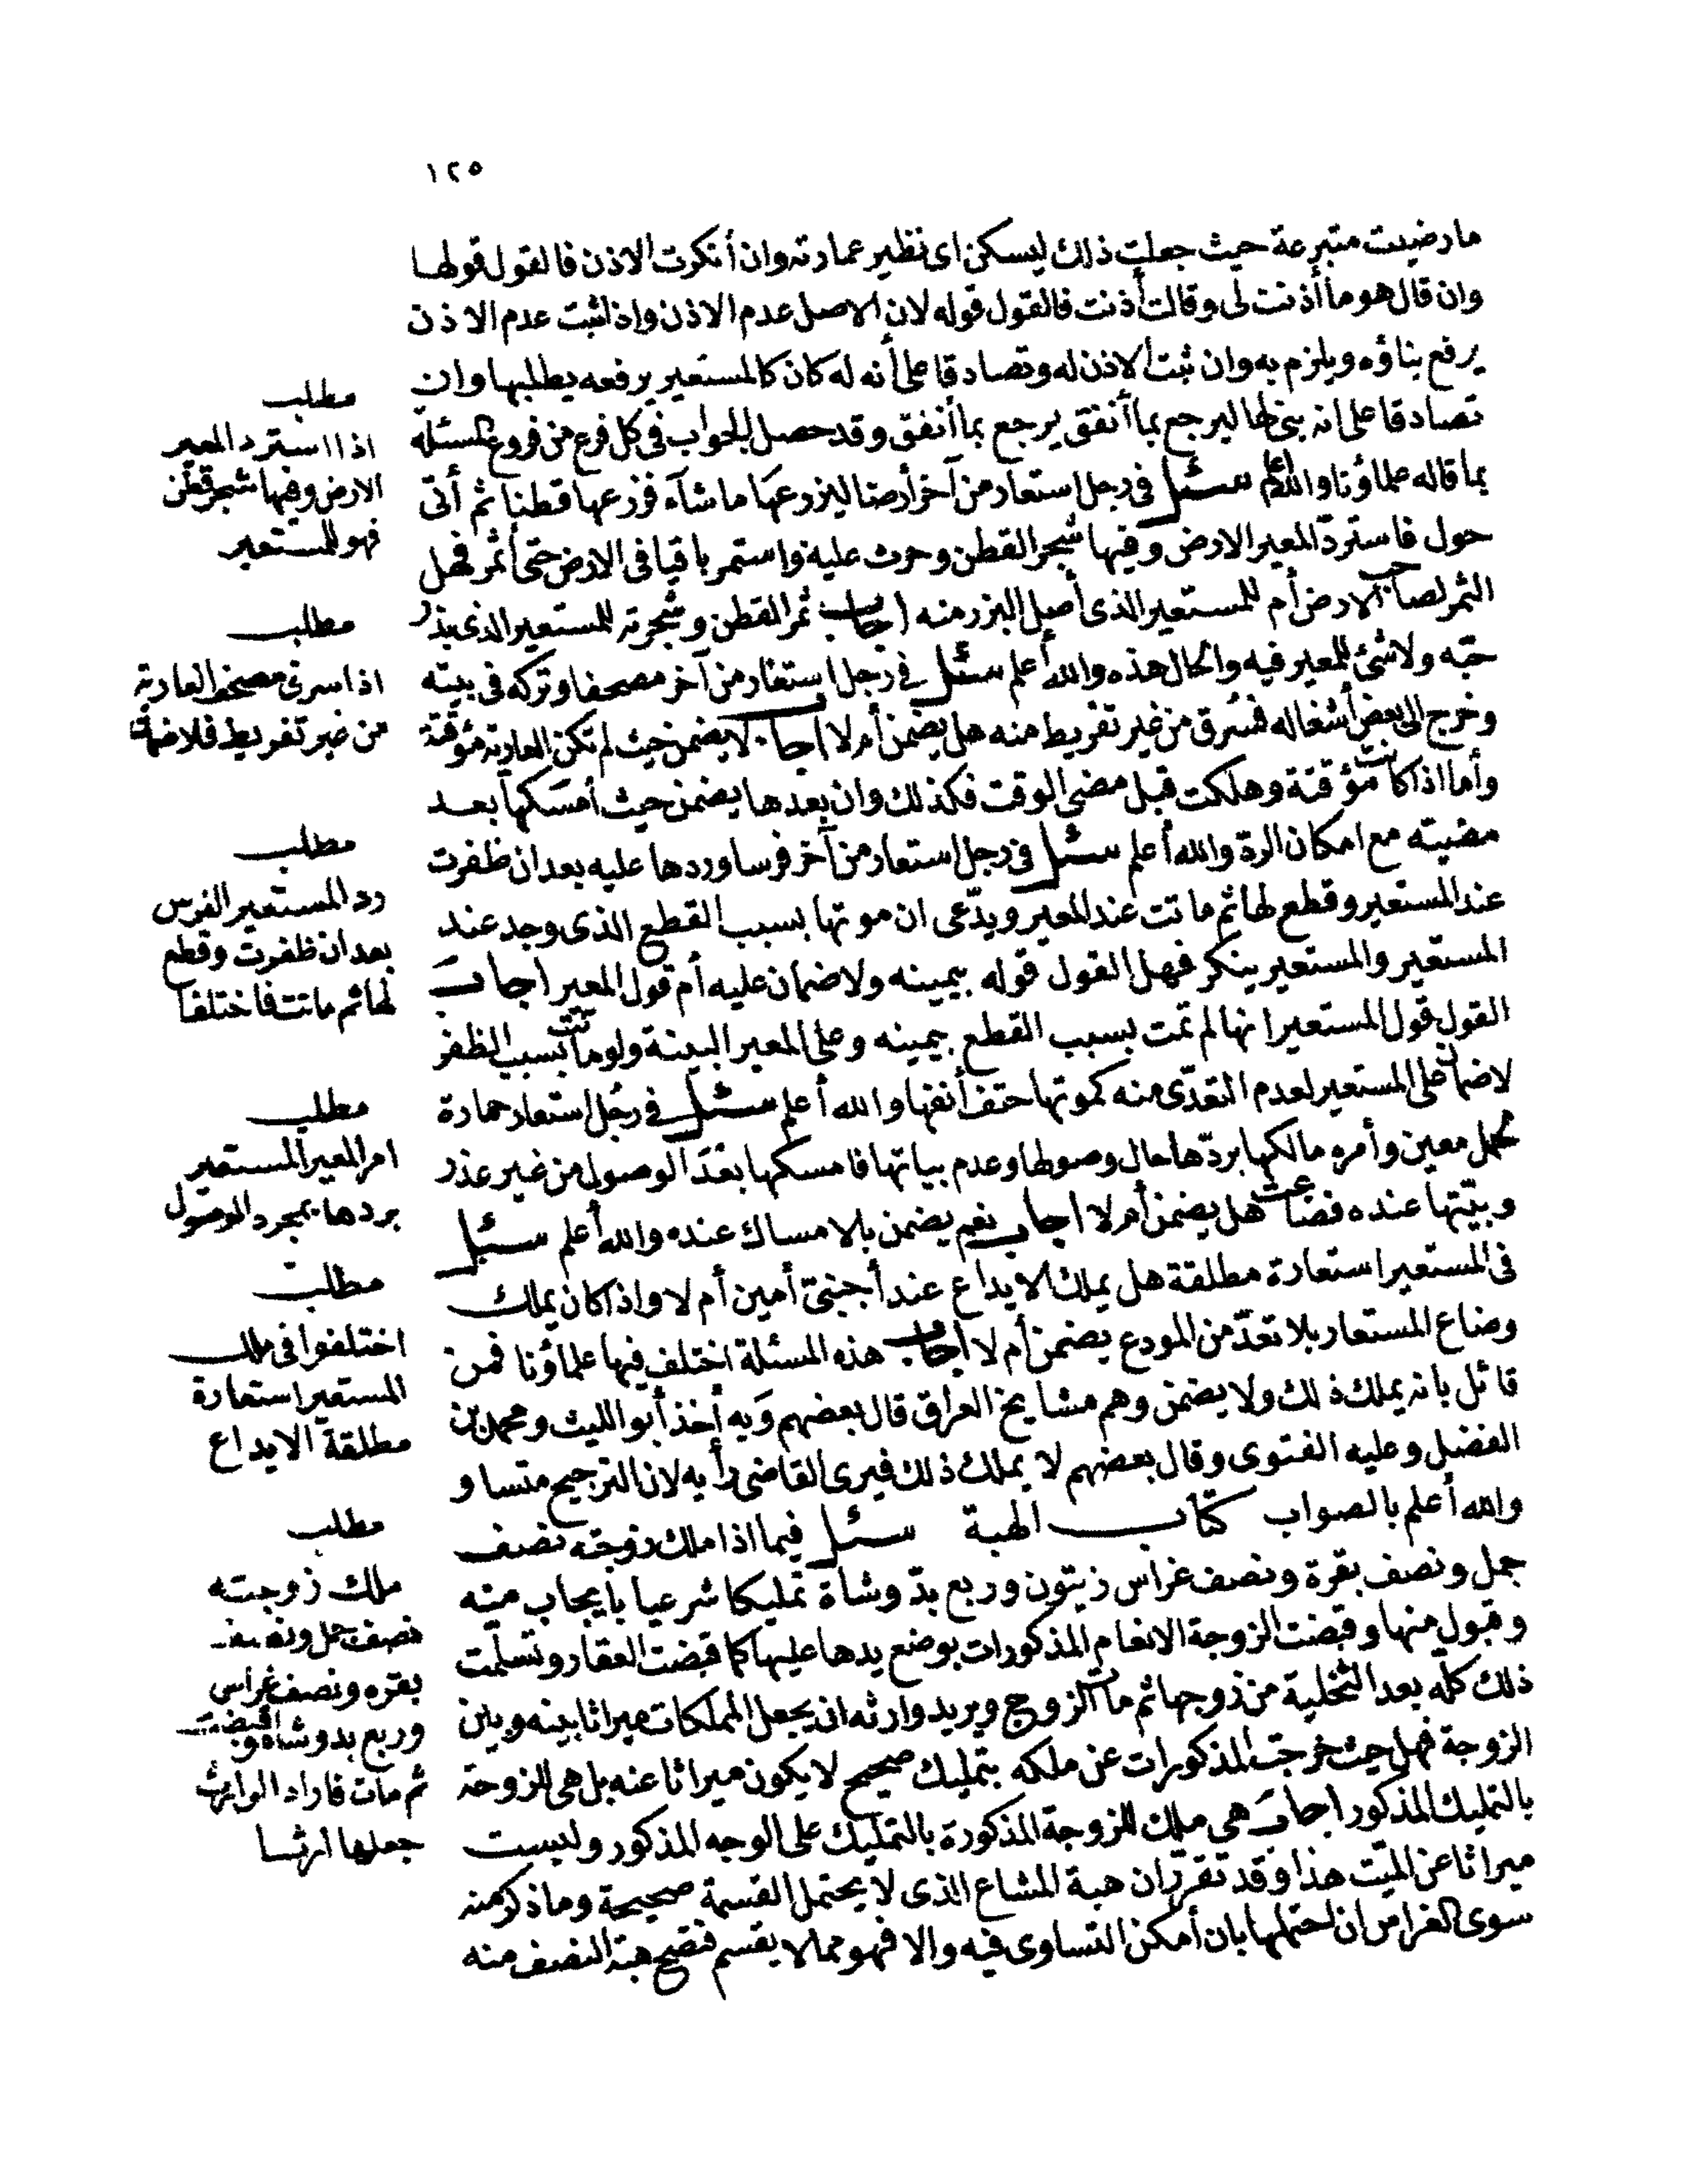 ١٢٥
ما رضيت متبرعة حيث جعلت ذلك ليسكن اى نظير عمارته وان أنكرت الاذن فالقول قولها
وان قال هو ما أذنت لى وقالت أذنت فالقول قوله لان الاصل عدم الاذن واذا ثبت عدم الاذن
يرفع بناؤه ويلزم به وان ثبت الاذن له وتصادقا على أنه له كان كالمستعير يرفعه بطلبها وان
تصادقا على انه بنى لها ليرجع بما أنفق يرجع بما أنفق وقد حصل الجواب فى كل فرع من فروع المسئلة
بما قاله علماؤنا والله اعلم سئل فى رجل استعار من آخر أرضا ليزرعها ما شآء فزرعها قطنا ثم أتى
حول فاستردّ المعير الارض وفيها شجر القطن وحرث عليه واستمر باقيا فى الارض حتى أثمر فهل
الثمر لصاحب الارض أم للمستعير الذى أصل البزر منه اجاب ثمر القطن وشجرته للمستعير الذى بذر
حبّه ولا شئ للمعير فيه والحال هذه والله أعلم سئل فى رجل استعار من آخر مصحفا وتركه فى بيته
وخرج الى بعض أشغاله فسُرق من غير تفريط منه هل يضمن أم لا اجاب لا يضمن حيث لم تكن العارية مؤقتة
وأما اذا كانت مؤقتة وهلكت قبل مضى الوقت فكذلك وان بعدها يضمن حيث أمسكها بعد
مضيته مع امكان الردّ والله أعلم سئل فى رجل استعار من آخر فرسا وردها عليه بعد ان ظفرت
عند المستعير وقطع لها ثم ماتت عند المعير ويدّعى ان موتها بسبب القطع الذى وجد عند
المستعير والمستعير ينكر فهل القول قوله بيمينه ولا ضمان عليه أم قول المعير اجاب
القول قول المستعير انها لم تمت بسبب القطع بيمينه وعلى المعير البينة ولو ماتت بسبب الظفر
لا ضمان على المستعير لعدم التعدّى منه كموتها حتف أنفها والله أعلم سئل فى رجل استعار حمارة
لحمل معين وأمره مالكها بردّها حال وصولها وعدم بياتها فامسكها بعد الوصول من غير عذر
وبيّتها عنده فضاعت هل يضمن أم لا اجاب نعم يضمن بالامساك عنده والله أعلم سئل
فى المستعير استعارة مطلقة هل يملك الايداع عند أجنبىّ أمين أم لا واذا كان يملك
وضاع المستعار بلا تعدّ من المودع يضمن أم لا أجاب هذه المسئلة اختلف فيها علماؤنا فمن
قائل بانه يملك ذلك ولا يضمن وهم مشايخ العراق قال بعضهم وبه أخذ أبو الليث ومحمد بن
الفضل وعليه الفتوى وقال بعضهم لا يملك ذلك فيرى القاضى رأيه لان الترجيح متساو
والله أعلم بالصواب كتاب الهبة سئل فيما اذا ملك زوجته نصف
جمل ونصف بقرة ونصف غراس زيتون وربع بدّ وشاة تمليكا شرعيا بايجاب منه
وقبول منها وقبضت الزوجة الانعام المذكورات بوضع يدها عليها كما قبضت العقار وتسلمت
ذلك كله بعد التخلية من زوجها ثم مات الزوج ويريد وارثه ان يجعل المملكات ميراثا بينه وبين
الزوجة فهل حيث خرجت المذكورات عن ملكه بتمليك صحيح لا يكون ميراثا عنه بل هى للزوجة
بالتمليك المذكور اجاب هى ملك للزوجة المذكورة بالتمليك على الوجه المذكور وليست
ميراثا عن الميّت هذا وقد تقرّر ان هبة المشاع الذى لا يحتمل القسمة صحيحة وما ذكر منه
سوى الغراس ان احتملها بان أمكن التساوى فيه والا فهو مما لا يقسم فتصح هبة النصف منه
مطلب
اذا استرد المعير
الارض وفيها شجر قطن
فهو للمستعير
مطلب
اذا سرق مصحف العارية
من غير تفريط فلا ضمان
مطلب
رد المستعير الفرس
بعد ان ظفرت وقطع
لها ثم ماتت فاختلفا
مطلب
امر المعير المستعير
بردها بمجرد الوصول
مطلب
اختلفوا فى ملك
المستعير استعارة
مطلقة الايداع
مطلب
ملك زوجته
نصف جمل ونصف
بقره ونصف غراس
وربع بد وشاة وقبضت
ثم مات فاراد الوارث
جعلها ارثا